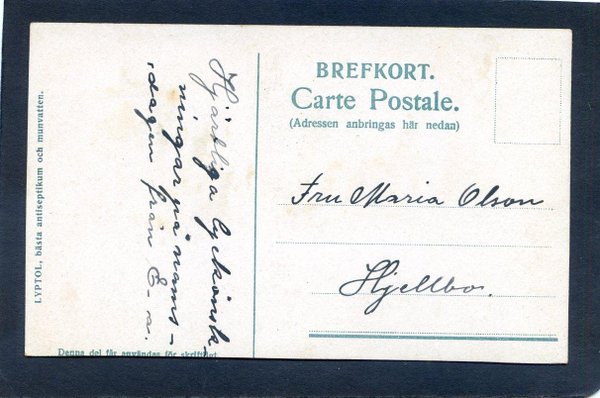 BREFKORT.
Carte Postale.
(Adressen anbringas här nedan)
Fru Maria Olson
Hjellbo.
Hjärtliga lyckönsk-
ningar på nams-
dagen från E-a.
LYPTOL, bästa antiseptikum och munvatten.
Denna del får användas för skriftligt